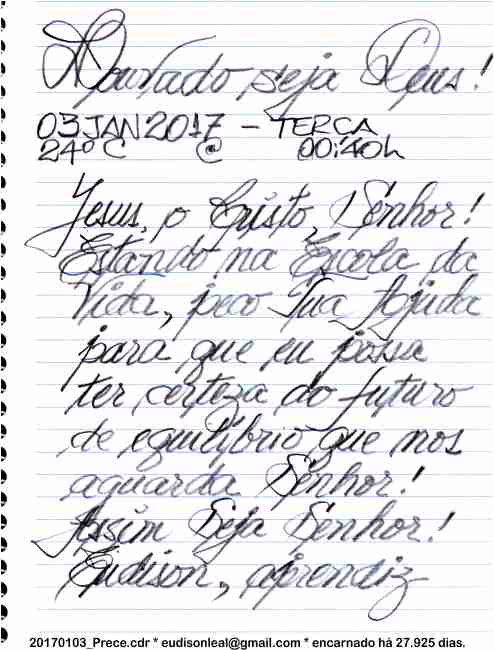 Louvado seja Deus!
03 JAN 2017 - TERÇA
24º C @ 00:40h
Jesus, o Cristo, Senhor!
Estando na Escola da
Vida, peço Tua Ajuda
para que eu possa
ter certeza do futuro
de equilíbrio que nos
aguarda Senhor!
Assim Seja Senhor!
Eudison, aprendiz
20170103_Prece.cdr * eudisonleal@gmail.com * encarnado há 27.925 dias.